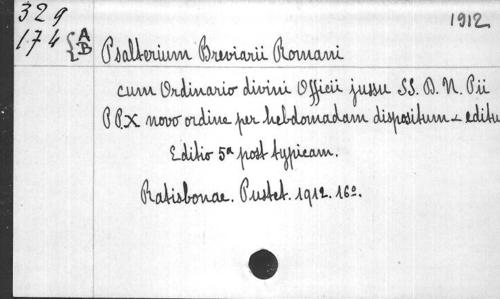 329
174 {A B
1912
Psalterium Breviarii Romani
cum Ordinario divini Officii jussu SS. D. N. Pii
P P. X novo ordine per hebdomadam dispositum & editu
Editio 5ª post typicam.
Ratisbonae. Pustet. 1912. 16º.